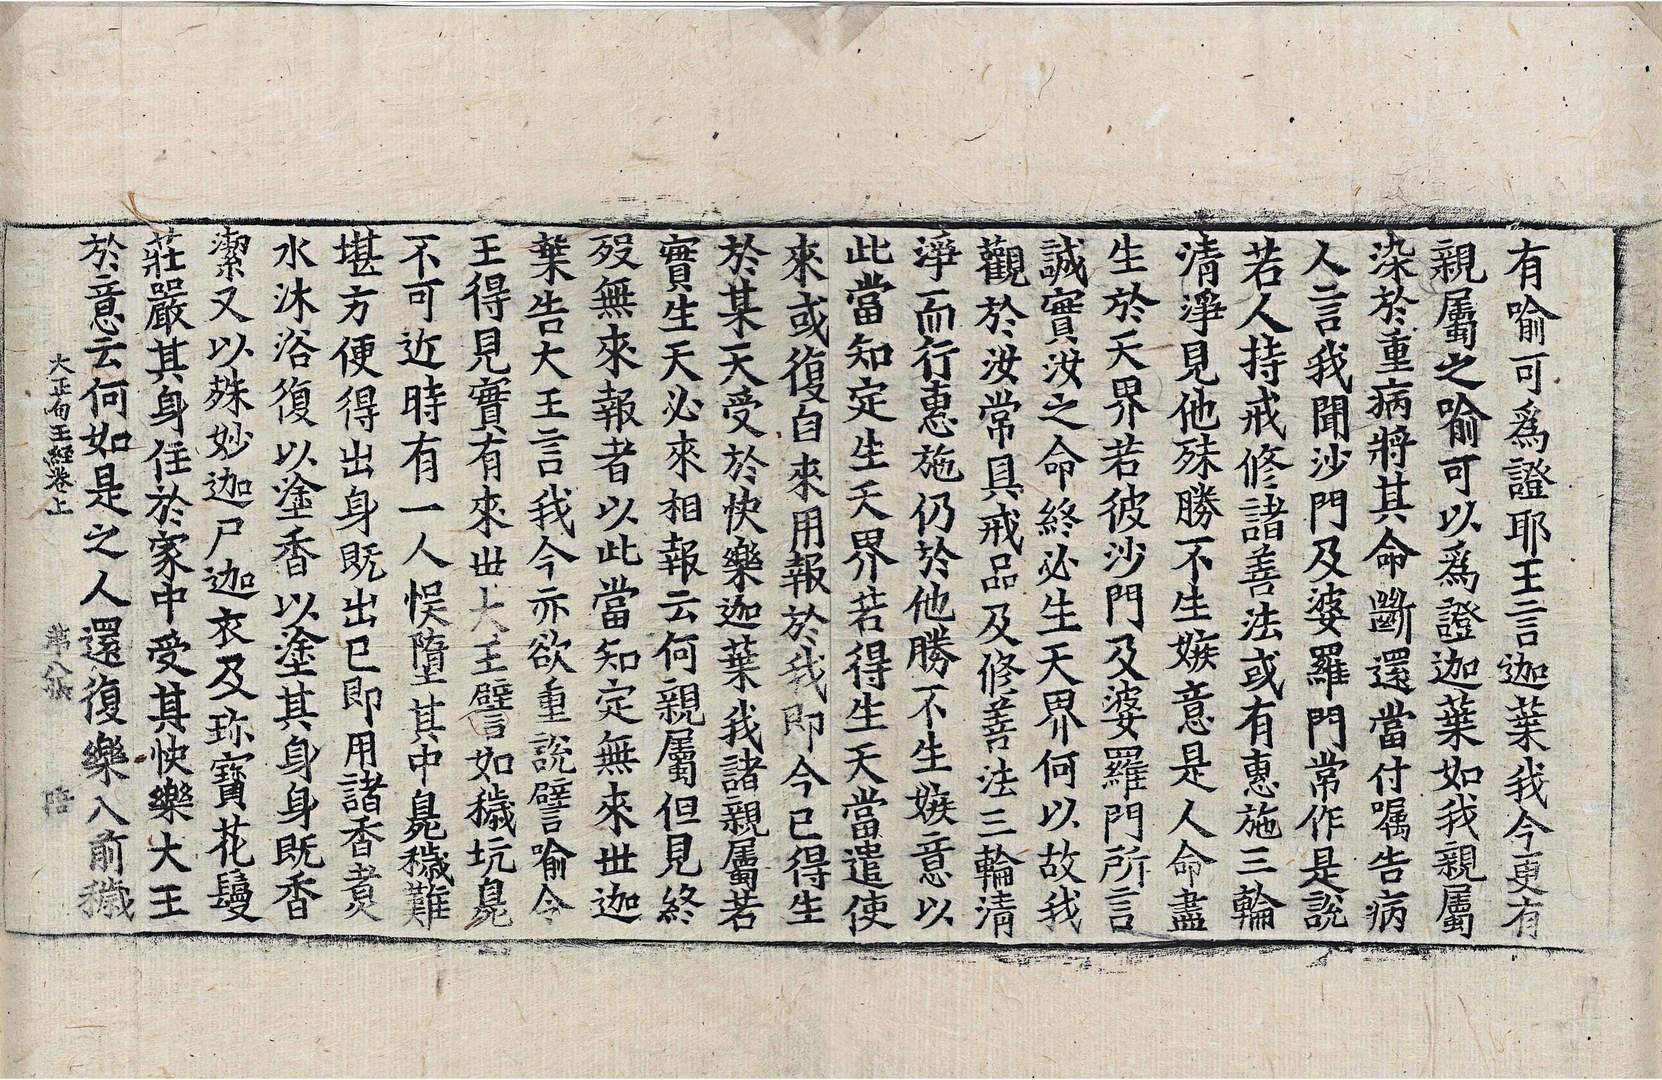 有喻可爲證耶王言迦葉我今更有
親屬之喻可以爲證迦葉如我親屬
染於重病將其命斷還當付囑告病
人言我聞沙門及婆羅門常作是說
若人持戒修諸善法或有惠施三輪
清淨見他殊勝不生嫉意是人命盡
生於天界若彼沙門及婆羅門所言
誠實汝之命終必生天界何以故我
觀於汝常具戒品及修善法三輪清
淨而行惠施仍於他勝不生嫉意以
此當知定生天界若得生天當遣使
來或復自來用報於我我即今已得生
於某天受於快樂迦葉我諸親屬若
實生天必來相報云何親屬但見終
歿無來報者以此當知定無來世迦
葉告大王言我今亦欲重說譬喻令
王得見實有來世大王譬如穢坑臭
不可近時有一人悞墮其中臭穢難
堪方便得出身既出已即用諸香煑
水沐浴復以塗香以塗其身身既香
潔又以殊妙迦尸迦衣及珎寶花鬘
莊嚴其身住於家中受其快樂大王
於意云何如是之人還復樂入前穢
大正句王經卷上 第八張